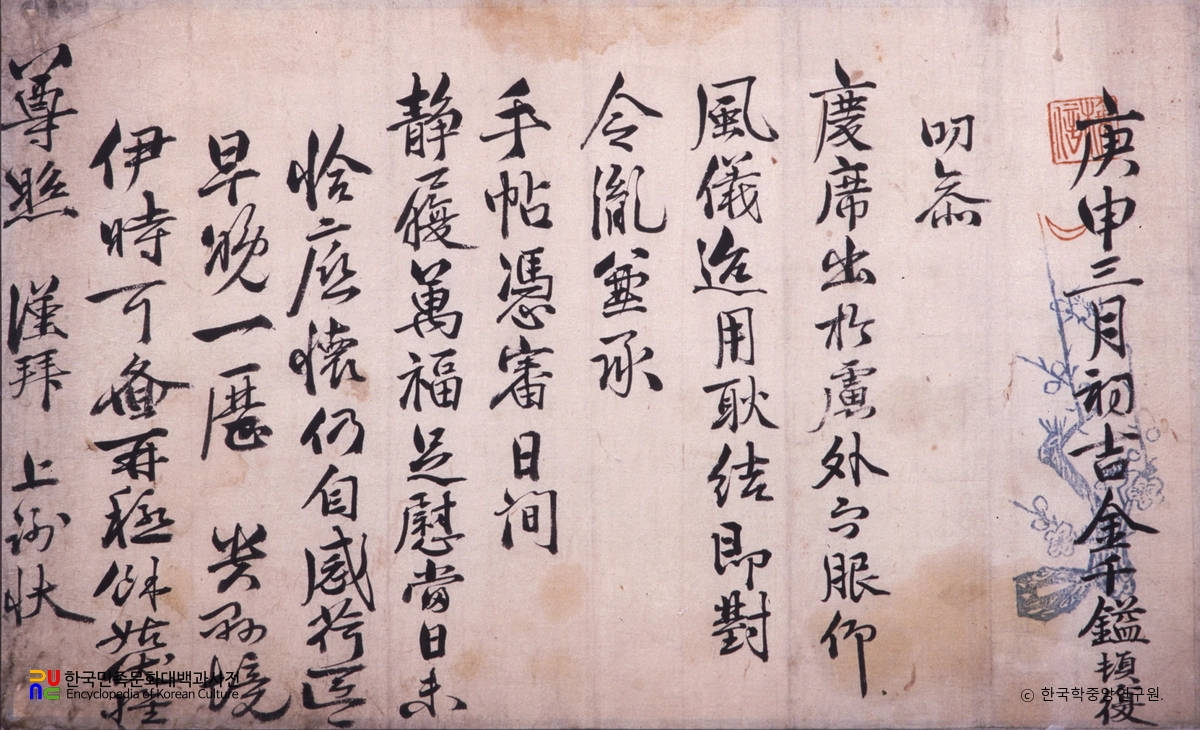 庚申三月初吉金千鎰頓復
叨忝
慶席出於慮外而服仰
風儀迨用耿結即對
令胤並承
手帖憑審日間
靜履萬福足慰當日未
恰底懷仍自感荷區
早晩一曆 貴縣境
伊時可盡再穩餘姑
尊照 謹拜 上謝狀
한국민족문화대백과사전
Encyclopedia of Korean Culture
© 한국학중앙연구원.